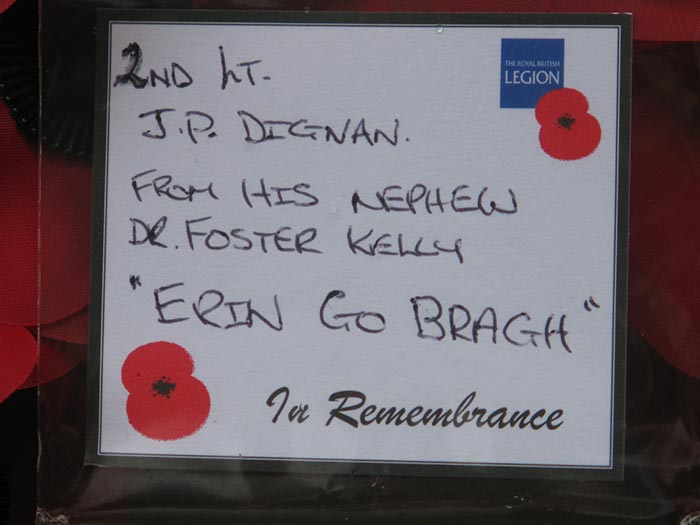 2ND LT.
THE ROYAL BRITISH
LEGION
J.P. DIGNAN.
FROM HIS NEPHEW
DR. FOSTER KELLY
"ERIN GO BRAGH"
In Remembrance